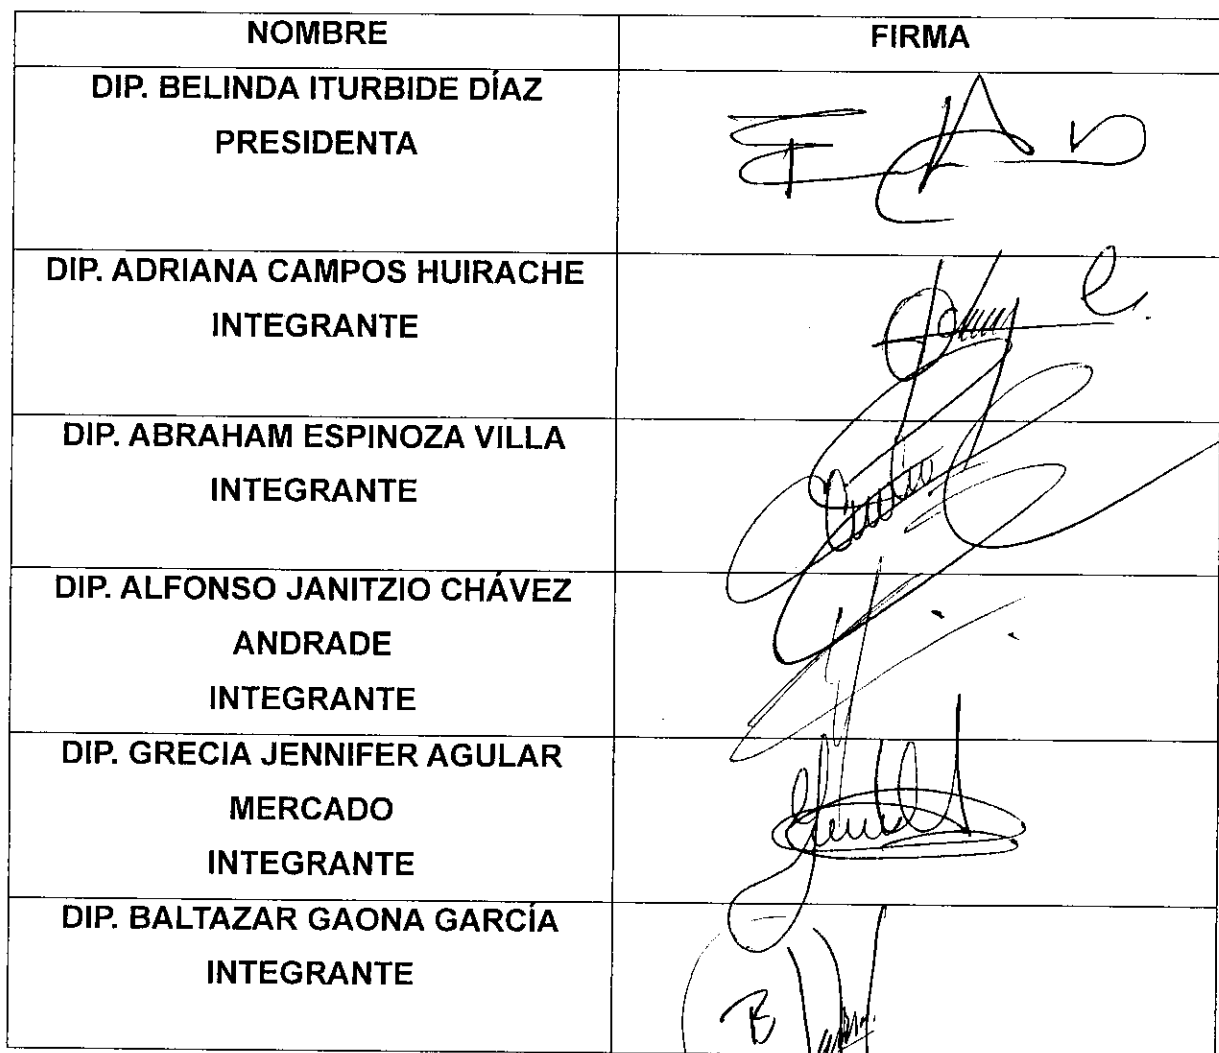 NOMBRE FIRMA
DIP. BELINDA ITURBIDE DÍAZ
PRESIDENTA
DIP. ADRIANA CAMPOS HUIRACHE
INTEGRANTE
DIP. ABRAHAM ESPINOZA VILLA
INTEGRANTE
DIP. ALFONSO JANITZIO CHÁVEZ
ANDRADE
INTEGRANTE
DIP. GRECIA JENNIFER AGULAR
MERCADO
INTEGRANTE
DIP. BALTAZAR GAONA GARCÍA
INTEGRANTE